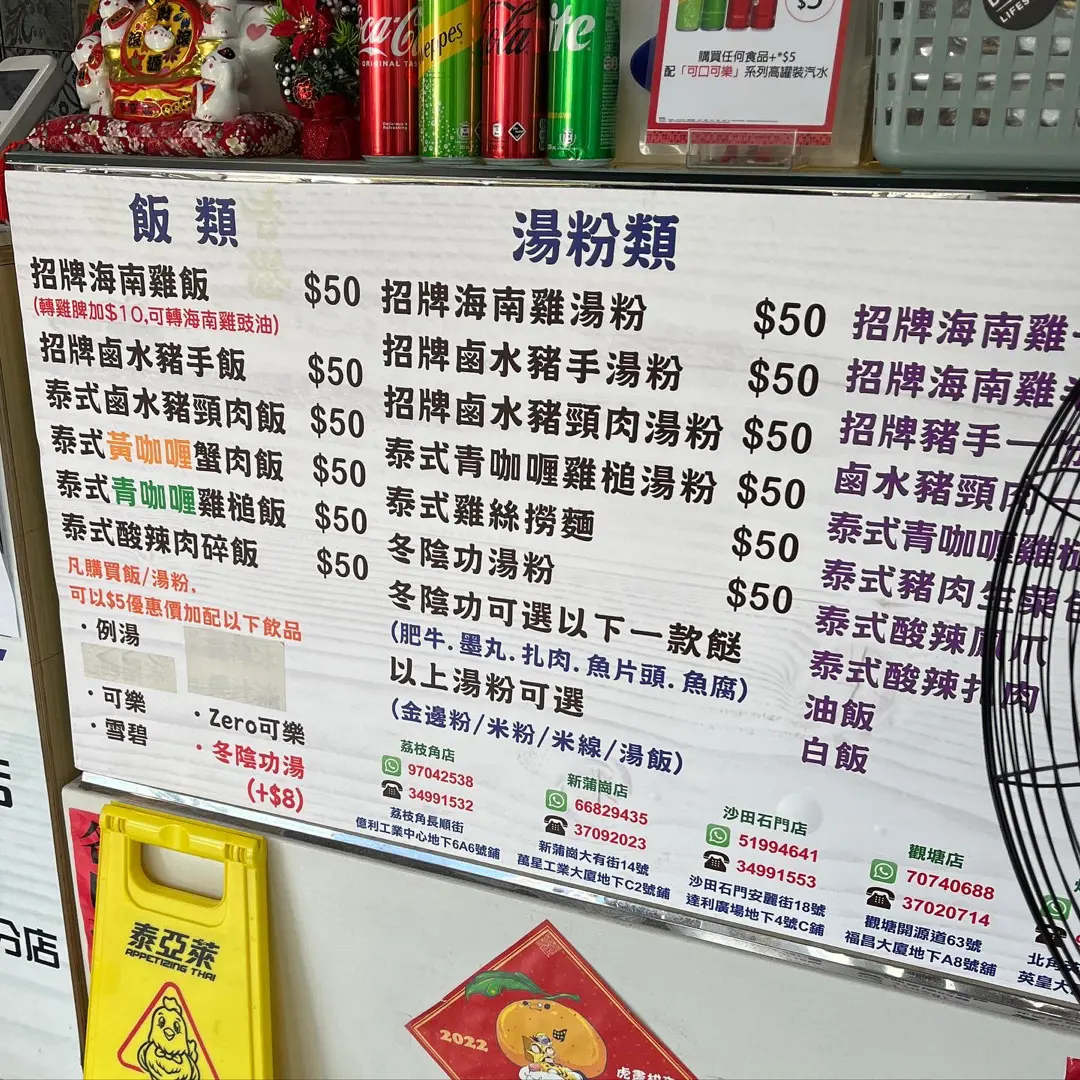 Coca-Cola
ORIGINAL TAS
weppes
Cola
ite
$5
購買任何食品+*$5
配「可口可樂」系列高罐裝汽水
LIFES
飯類
招牌海南雞飯 $50
(轉雞脾加$10,可轉海南雞豉油)
招牌鹵水豬手飯 $50
泰式鹵水豬頸肉飯 $50
泰式黃咖喱蟹肉飯 $50
泰式青咖喱雞槌飯 $50
泰式酸辣肉碎飯 $50
凡購買飯/湯粉,
可以$5優惠價加配以下飲品
·例湯
·可樂
·雪碧
·Zero可樂
·冬陰功湯
(+$8)
湯粉類
招牌海南雞湯粉 $50
招牌鹵水豬手湯粉 $50
招牌鹵水豬頸肉湯粉 $50
泰式青咖喱雞槌湯粉 $50
泰式雞絲撈麵 $50
冬陰功湯粉 $50
冬陰功可選以下一款餸
(肥牛.墨丸.扎肉.魚片頭.魚腐)
以上湯粉可選
(金邊粉/米粉/米線/湯飯)
招牌海南雞
招牌海南雞
招牌豬手一
鹵水豬頸肉一
泰式青咖喱雞槌
泰式豬肉生菜包
泰式酸辣鳳爪
泰式酸辣扎肉
油飯
白飯
荔枝角店
97042538
34991532
荔枝角長順街
億利工業中心地下6A6號鋪
新蒲崗店
66829435
37092023
新蒲崗大有街14號
萬星工業大廈地下C2號鋪
沙田石門店
51994641
34991553
沙田石門安麗街18號
達利廣場地下4號C鋪
觀塘店
70740688
37020714
觀塘開源道63號
福昌大廈地下A8號鋪
北角
英皇大
分店
泰亞萊
APPETIZING THAI
2022